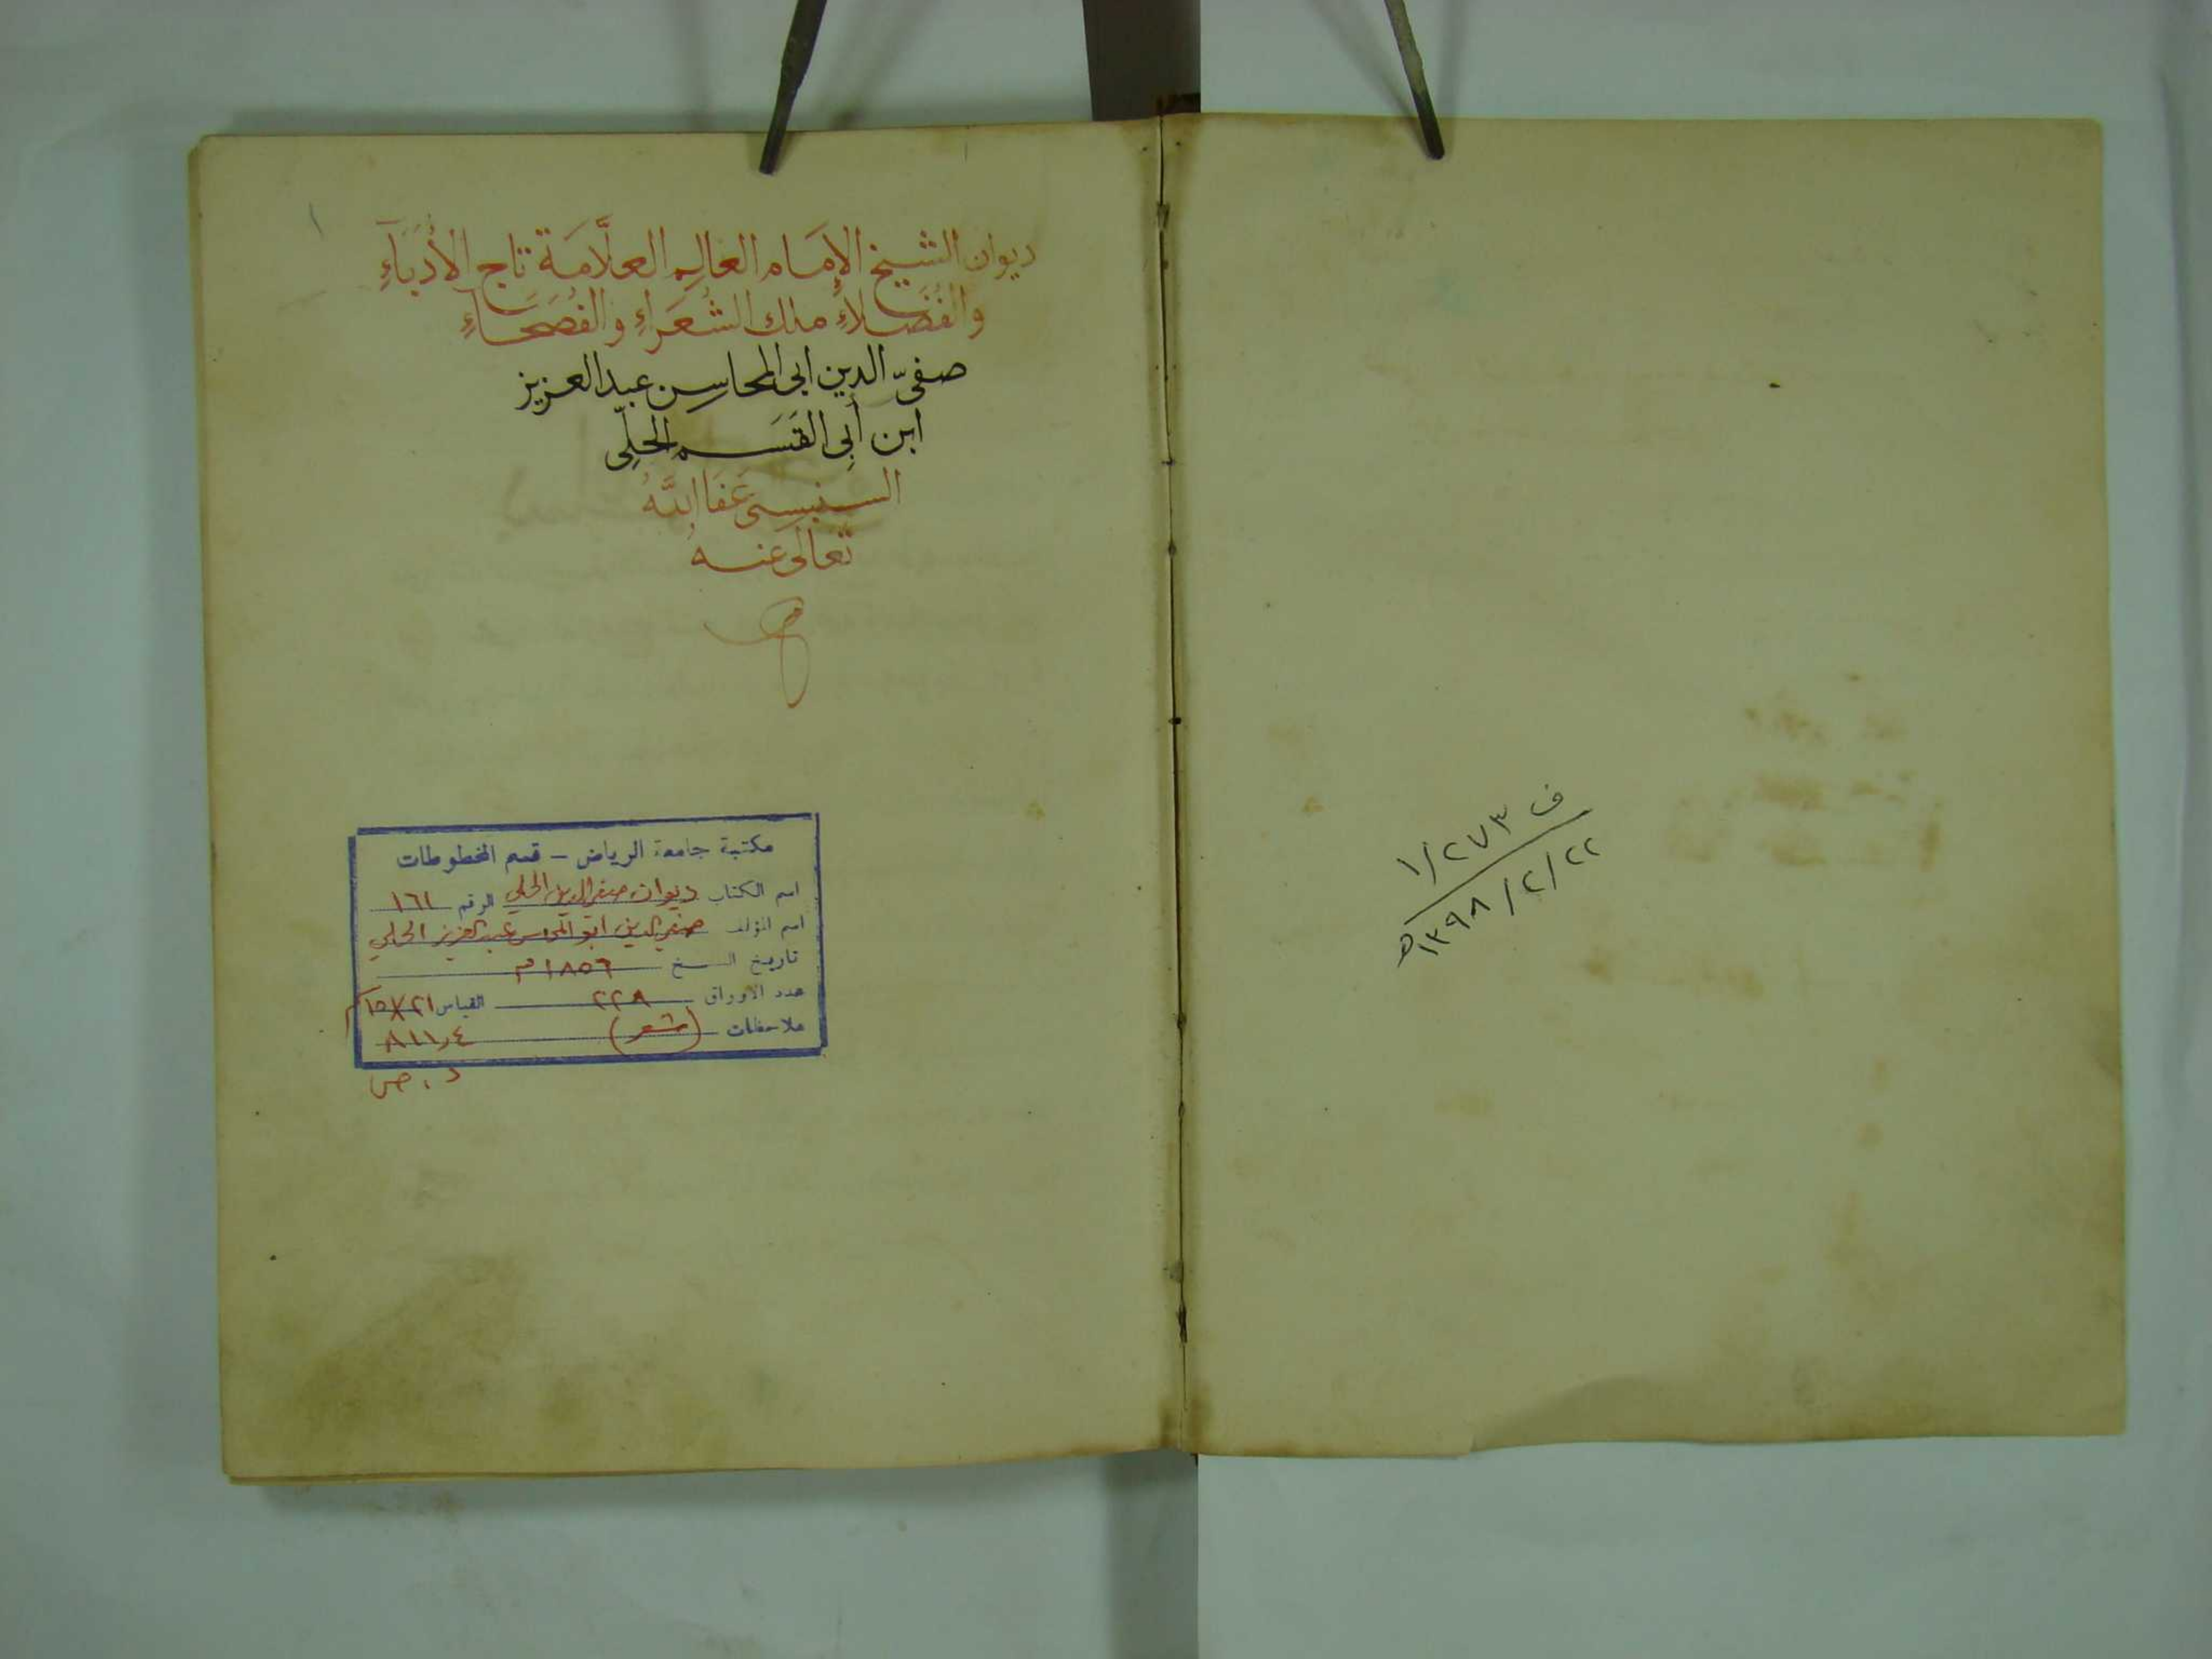 ف ١/٢٧٣
١٣٩٨/٢/٢٢ه
١
ديوان الشيخ الإمَام العالِم العلَّامَة تاج الأُدَبَآءِ
والفُضَلاءِ ملك الشُعَراءِ والفُصَحَآءِ
صفىّ الدين ابى المحاسِن عبد العزيز
ابن أبِى القَسَم الحلِّى
السنبسى عَفَا اللَّهُ
تَعَالَى عَنهُ
مكتبة جامعة الرياض - قسم المخطوطات
اسم الكتاب ديوان صفي الدين الحلي الرقم ١٦١
اسم المؤلف صفي الدين ابو المحاسن عبد العزيز الحلي
تاريخ النسخ ١٨٥٦م
عدد الأوراق ٢٢٨ القياس ٢١×١٥سم
ملاحظات (شعر) ٨١١٫٤
د . ص